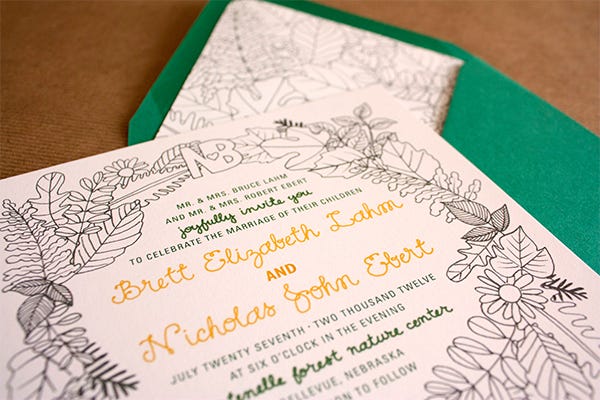 N B
MR. & MRS. BRUCE LAHM
AND MR. & MRS. ROBERT EBERT
joyfully invite you
TO CELEBRATE THE MARRIAGE OF THEIR CHILDREN
Brett Elizabeth Lahm
AND
Nicholas John Ebert
JULY TWENTY SEVENTH · TWO THOUSAND TWELVE
AT SIX O'CLOCK IN THE EVENING
tenelle forest nature center
BELLEVUE, NEBRASKA
ION TO FOLLOW